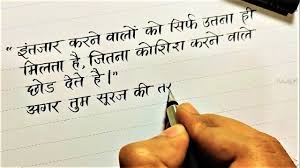 “ इंतजार करने वालों को सिर्फ उतना ही
मिलता है, जितना कोशिश करने वाले
छोड़ देते है |”
अगर तुम सूरज की तर